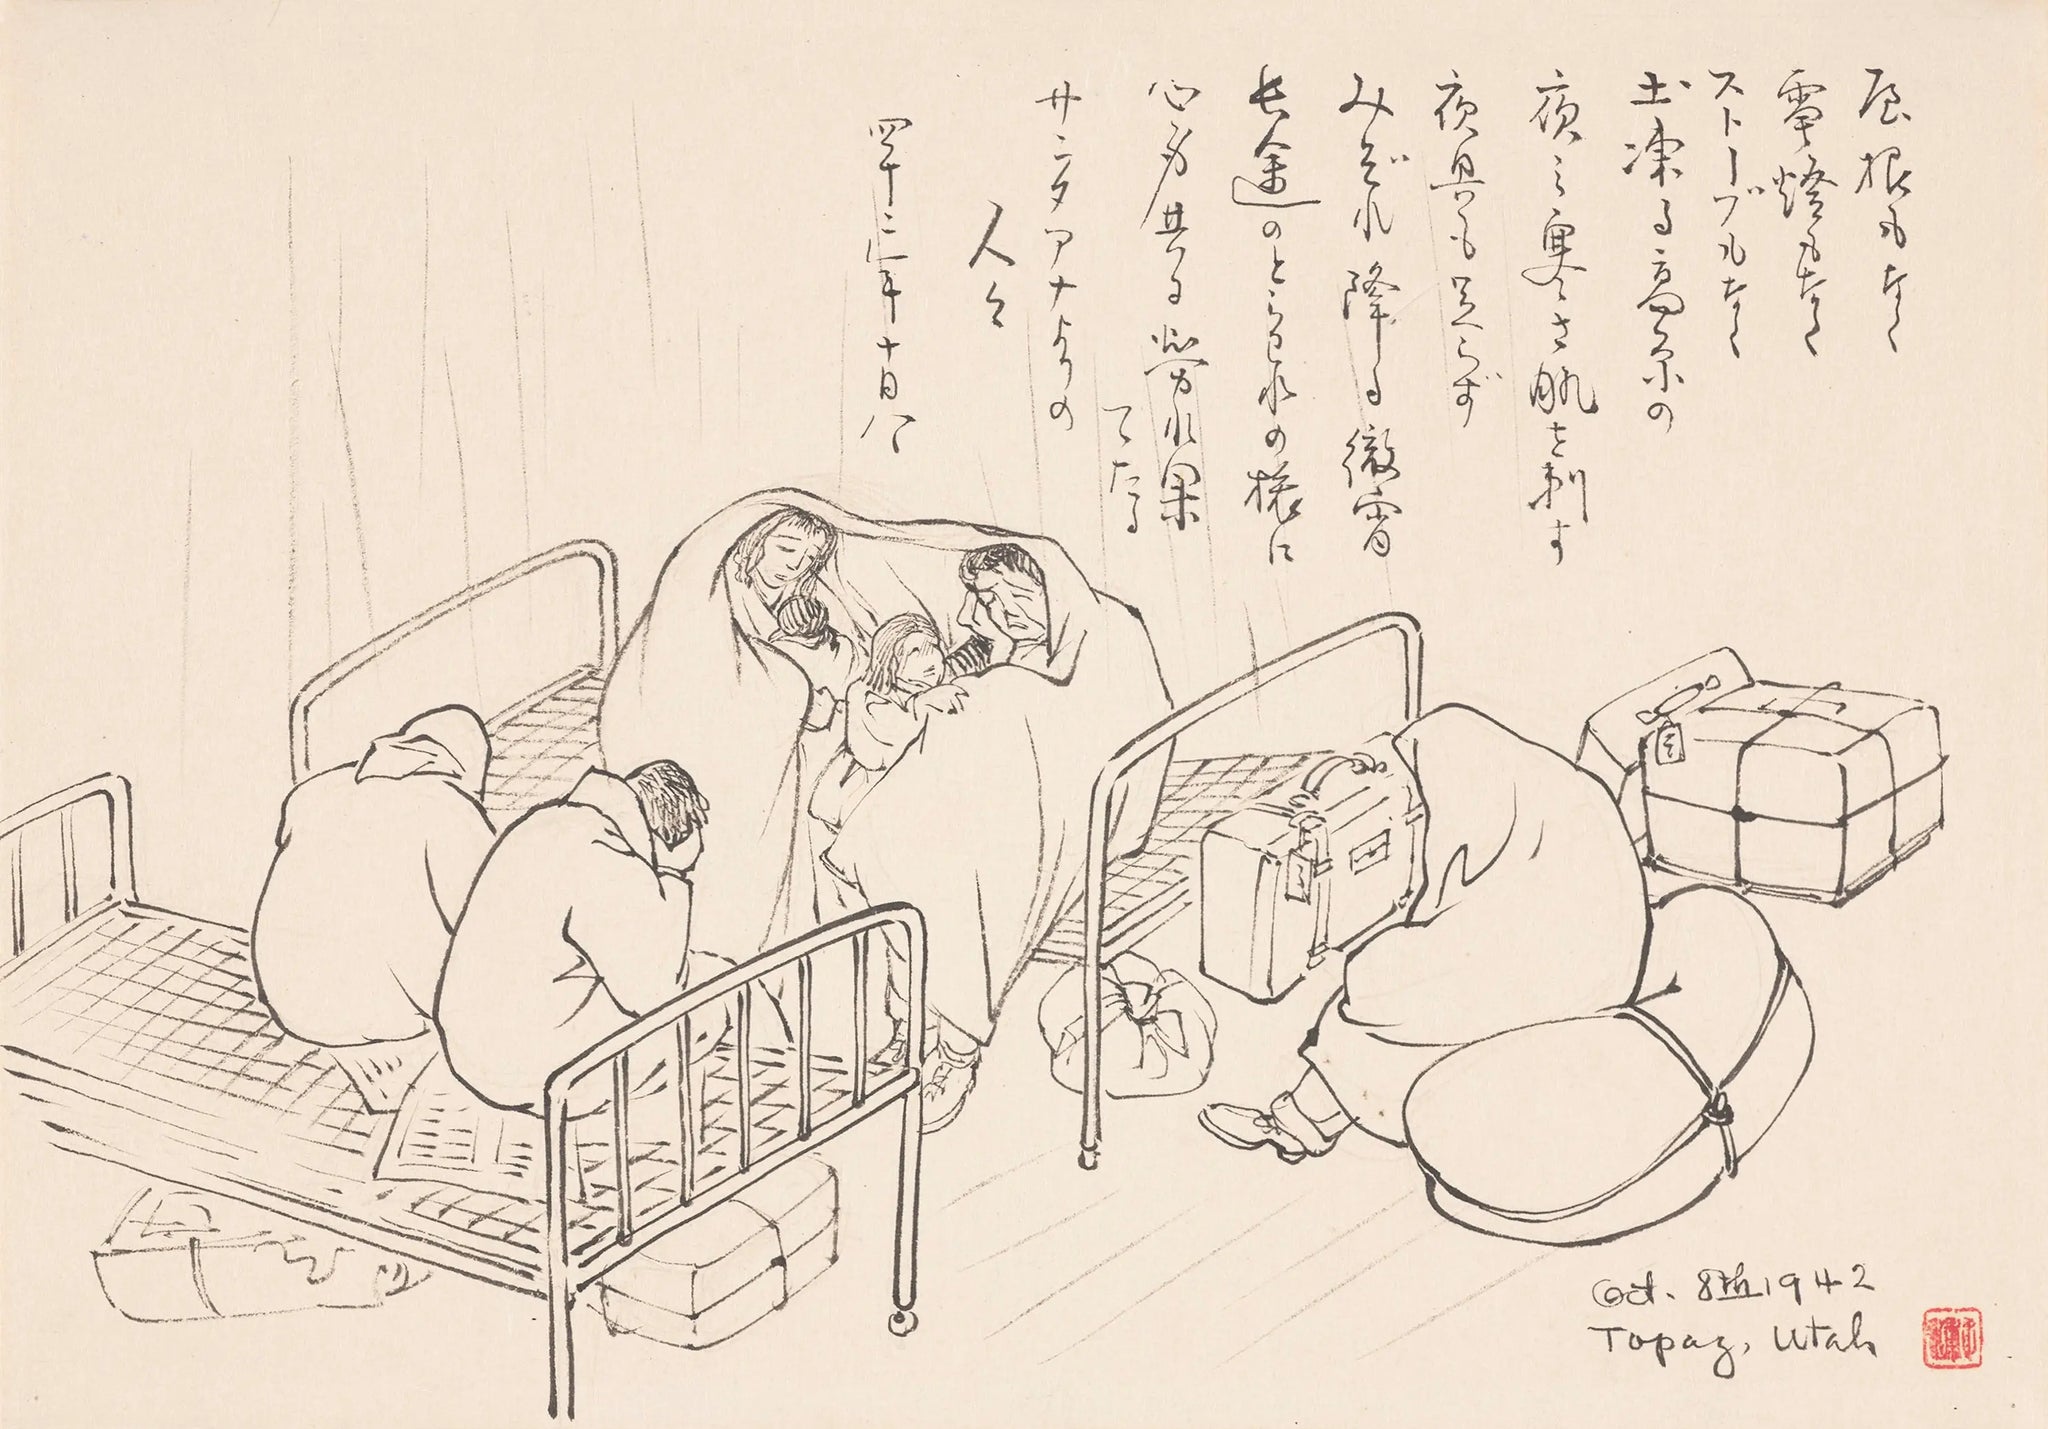 屋根もなく
電燈もなく
ストーブもなく
土凍る高原の
夜の寒さ肌を刺す
夜具も足らず
みぞれ降る徹宵
長途のとらはれの様に
心身共る労れ果
てたる
サンタアナよりの
人々
四十二年十月八
Oct. 8th 1942
Topaz, Utah